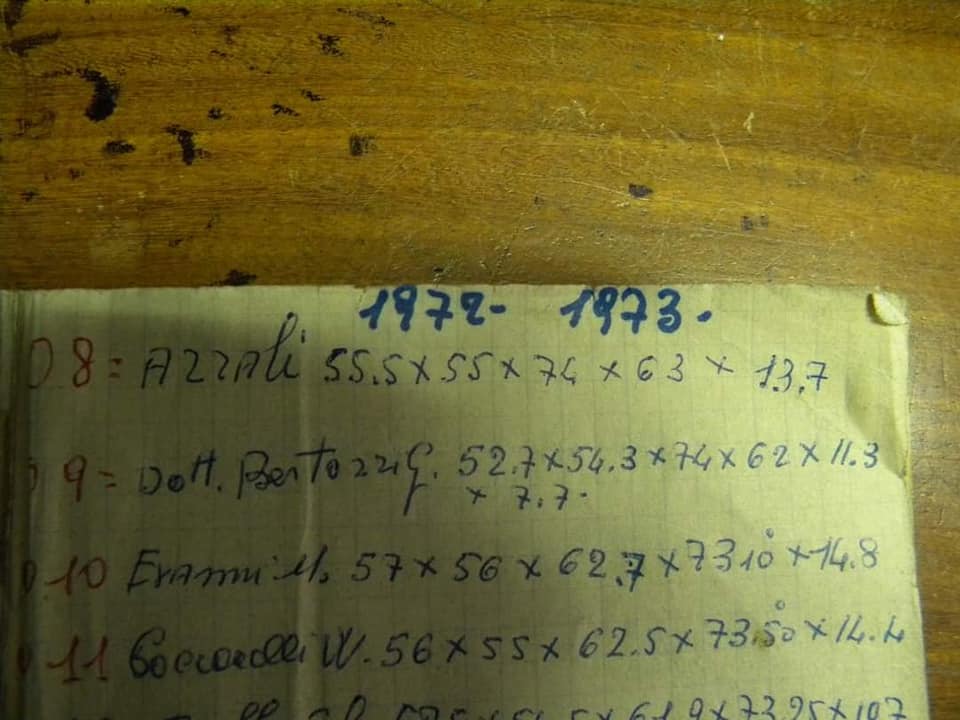 1972- 1973.
8= AZZALi 55.5 x 55 x 74 x 63 x 13.7
9= Dott. Bertozzi G. 52.7 x 54.3 x 74 x 62 x 11.3
x 7.7.
10 57 x 56 x 62.7 x 73 10° x 14.8
11 W. 56 x 55 x 62.5 x 73.50° x 14.4